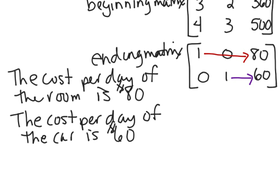 beginning matrix [3 2 360
4 3 500]
ending matrix [1 0 80
0 1 60]
The cost per day of
the room is $80
The cost per day of
the car is $60